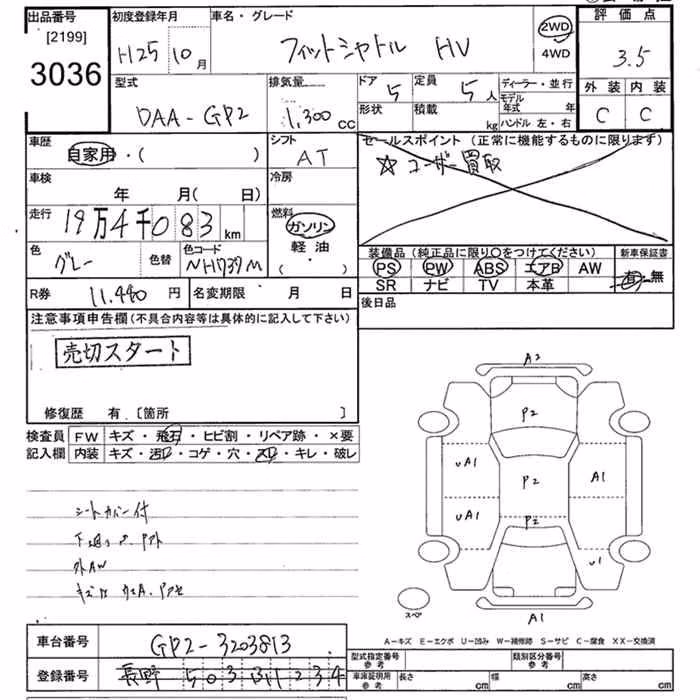 出品番号
[2199]
3036
初度登録年月
H25 10月
車名・グレード
フィットシャトル HV
2WD
4WD
評価点
3.5
外装 内装
C C
型式
DAA-GP2
排気量
1,300 cc
ドア 5
定員 5 人
形状
積載 kg
ディーラー・並行
モデル年式 年
ハンドル 左・右
車歴
自家用・( )
シフト
AT
セールスポイント(正常に機能するものに限ります)
☆ユーザー買取
車検
年 月( 日)
冷房
走行
19万4千083 km
燃料
ガソリン
軽油
( )
色
グレー
色替
色コード
NH737M
装備品(純正品に限り○をつけてください)
PS PW ABS エアB AW
SR ナビ TV 本革
新車保証書
有・無
R券 11,440 円
名変期限 月 日
後日品
注意事項申告欄(不具合内容等は具体的に記入して下さい)
売切スタート
修復歴 有.〔箇所 〕
検査員
記入欄
FW キズ・飛石・ヒビ割・リペア跡・×要
内装 キズ・汚れ・コゲ・穴・スレ・キレ・破レ
シートカバー付
外AW
A2
P2
UA1
P2
A1
UA1
P2
U1
A1
スペア
A-キズ E-エクボ U-凹み W-補修跡 S-サビ C-腐食 XX-交換済
車台番号 GP2-3203813
登録番号 長野 503
型式指定番号
参考
類別区分番号
参考
車庫証明用
参考
長さ cm
幅 cm
高さ cm